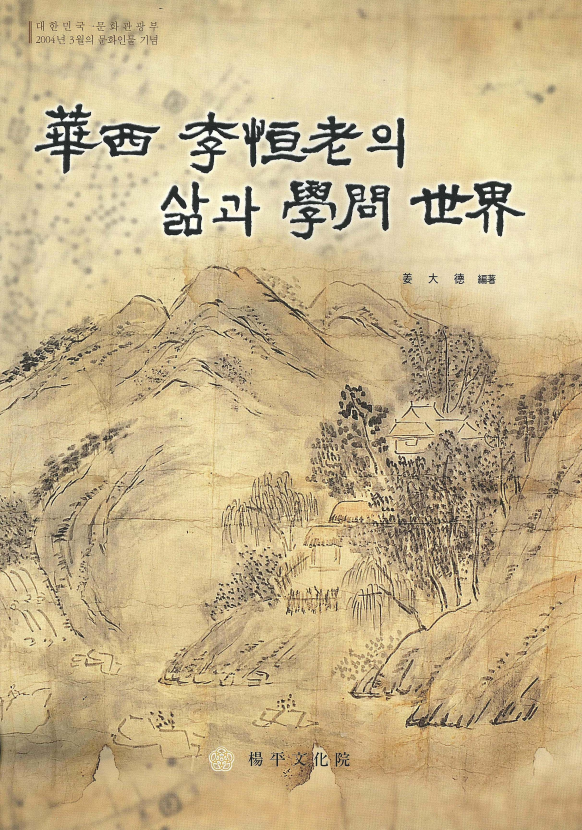 대한민국·문화관광부
2004년 3월의 문화인물 기념
華西 李恒老의
삶과 學問 世界
姜大德 編著
楊平文化院